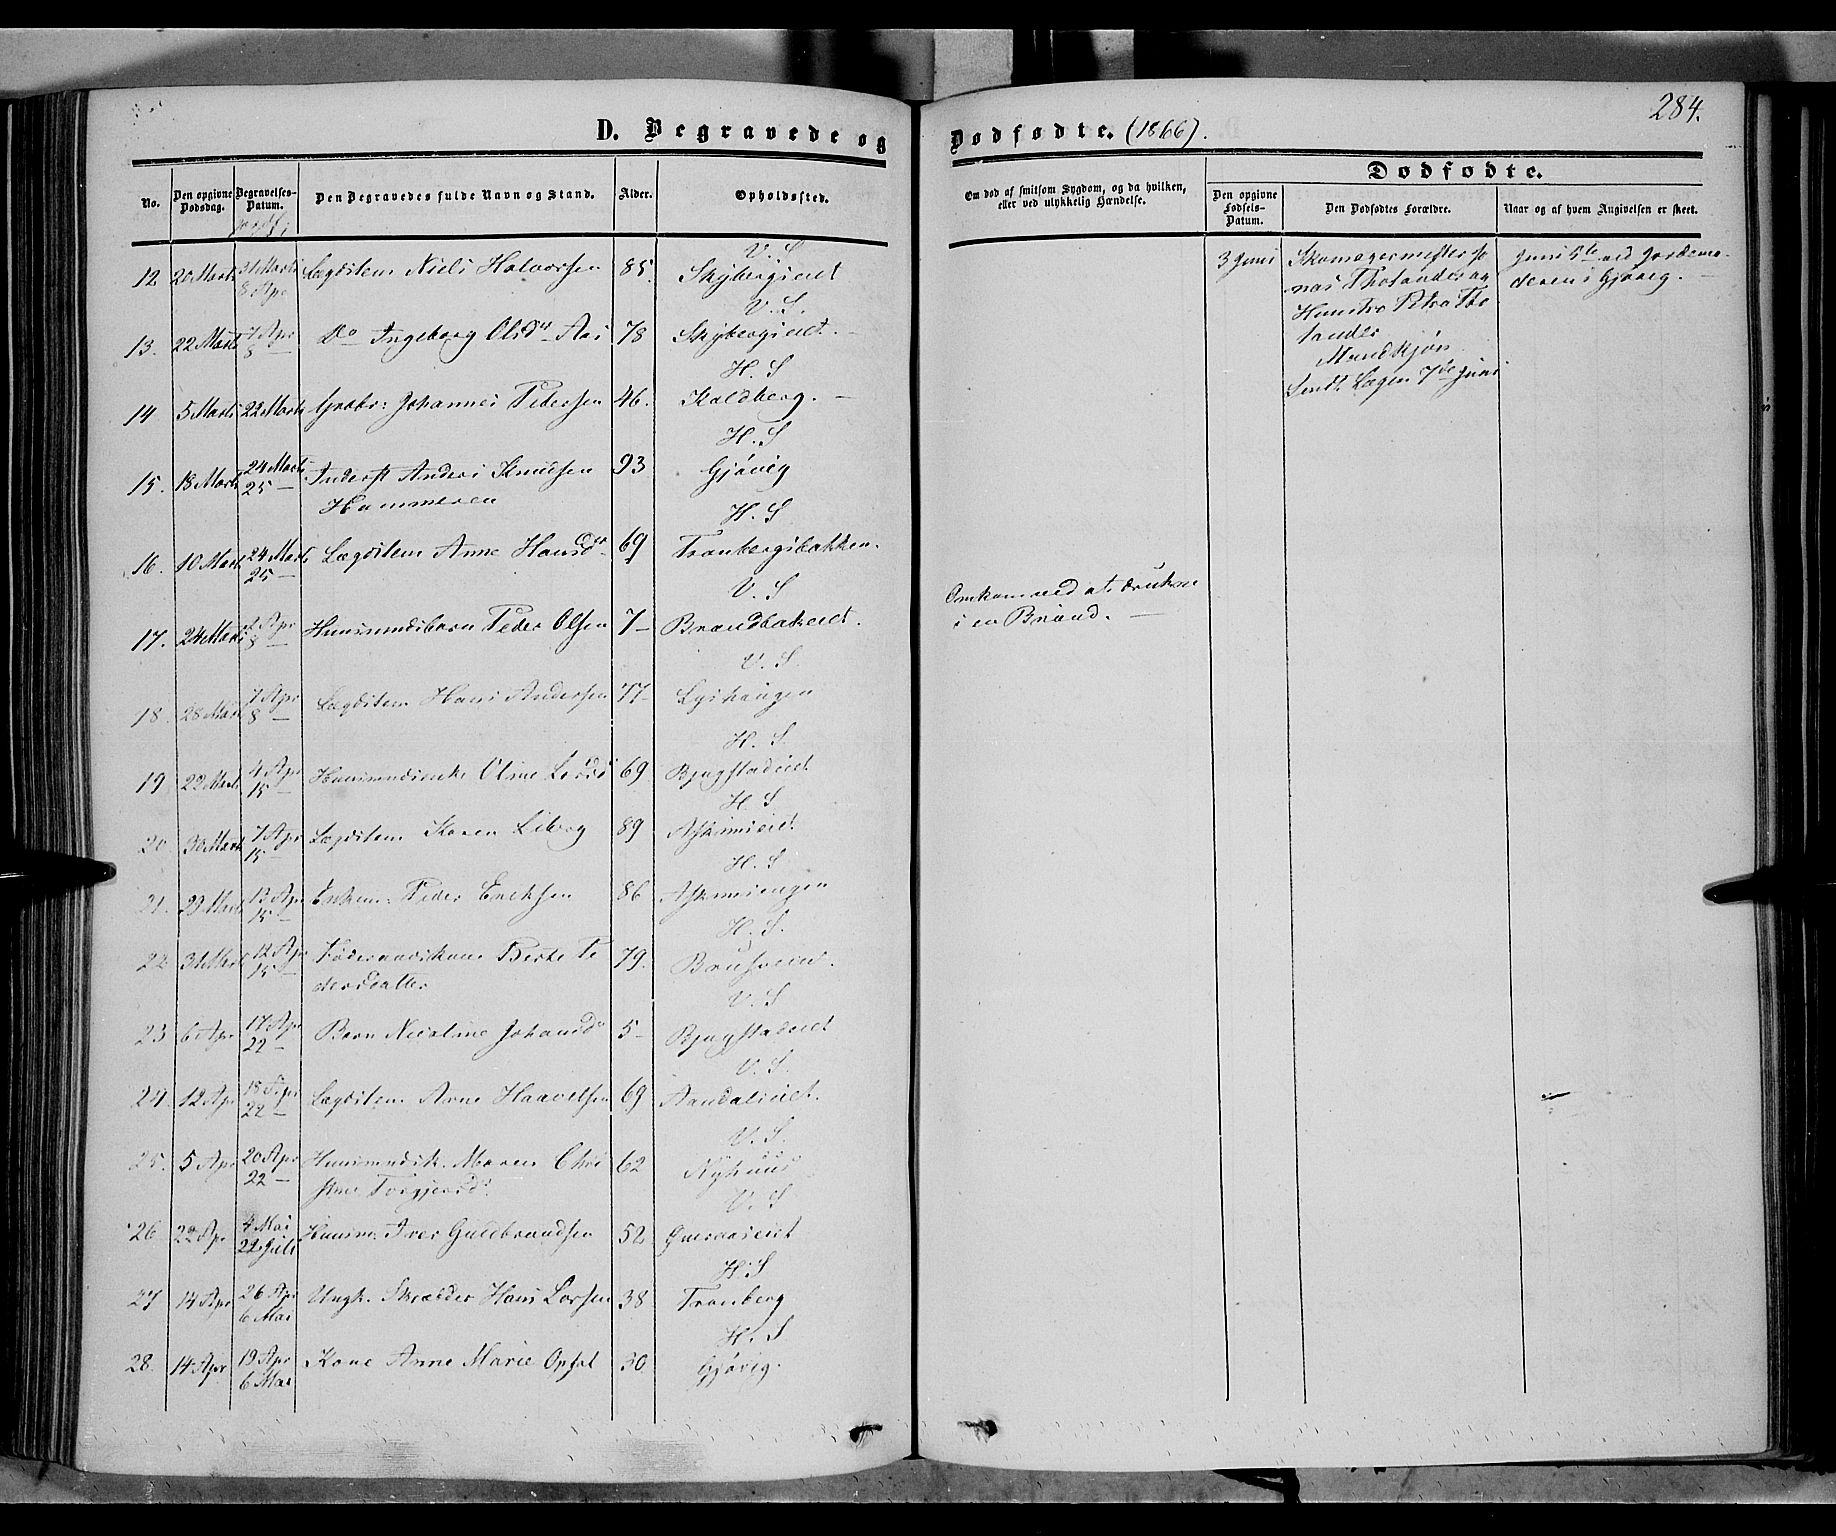 284.
D. Begravede og Dødfødte. (1866).
No.
Den opgivne Dødsdag.
Begravelses-Datum.
Den Begravedes fulde Navn og Stand.
Alder.
Opholdssted.
Om død af smitsom Sygdom, og da hvilken, eller ved ulykkelig Hændelse.
Dødfødte.
Den opgivne Fødsels-Datum.
Den Dødfødtes Forældre.
Naar og af hvem Angivelsen er skeet.
V. S
12 20 Marts 31 Marts Lægdslem Niels Halvorsen 85. Skybergseiet
8 Apr
V. S.
13. 22 Marts 7 Apr Do Ingeborg Olsdtr Aas 78 Skybergseiet.
8 —
H. S
14 5 Marts 22 Marts Grdbr: Johannes Pedersen 46. Kaldberg. —
H. S
15. 18 Marts 24 Marts Inderst Anders Knudsen 93 Gjøvig
25 — Hammeren
H. S
16. 10 Marts 24 Marts Lægdslem Anne Hansdtr 69 Tranbergsbakken.
25 —
V. S
17. 24 Marts 7 Apr Huusmndsbarn Peder Olsen 7 — Brændbakeiet.
8 —
Omkom ved at drukne
i en Brønd. —
V. S.
18. 28 Marts 7 Apr Lægdslem Hans Andersen 77 — Lyshaugen
8 —
H. S.
19 22 Marts 4 Apr Huusmndsenke Oline Larsd 69 Bjugstadeiet
15 —
H. S
20 30 Marts 7 Apr Lægdslem Karen Liberg 89 Askimseiet
15 —
H. S
21. 29 Marts 13 Apr Enkem: Peder Eriksen 86 Askimsengen
15 —
H. S.
22 31 Marts 14 Apr Føderaadskone Berte Pe 79. Brusveen.
15 — dersdatter
V. S
23 6 Apr 17 Apr Barn Nicoline Johansd 5 — Bjugstadeiet
22 —
V. S.
24. 12 Apr 18 Apr Lægdslem Arne Haavelsen 69 Aandalseiet.
22 —
V. S.
25. 5 Apr 20 Apr Huusmndsk. Maren Chri 62 Nyhuus
22 — stine Torgjersd.
V. S
26 22 Apr 4 Mai Huusm: Iver Guldbrandsen 52
22 Juli
H. S
27 14 Apr 26 Apr Ungk. Skrædder Hans Larsen 38 Tranberg
6 Mai
H. S
28. 14 Apr 19 Apr Kone Anne Marie Opsal 30 Gjøvig.
6 Mai
3 Juni Skomagermester Jo
nas Tholander og
Hustro Petra Tho
lander
Mandkjøn
Sendt Lægen 7de Juni
Juni 5te ved Jordemo-
deren i Gjøvig. —